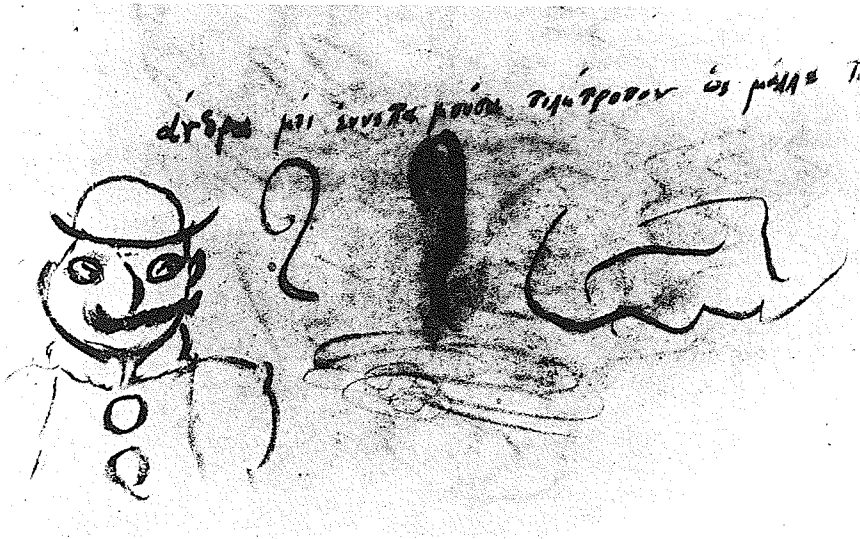 άνδρα μοι έννεπε μούσα πολύτροπον ός μάλα